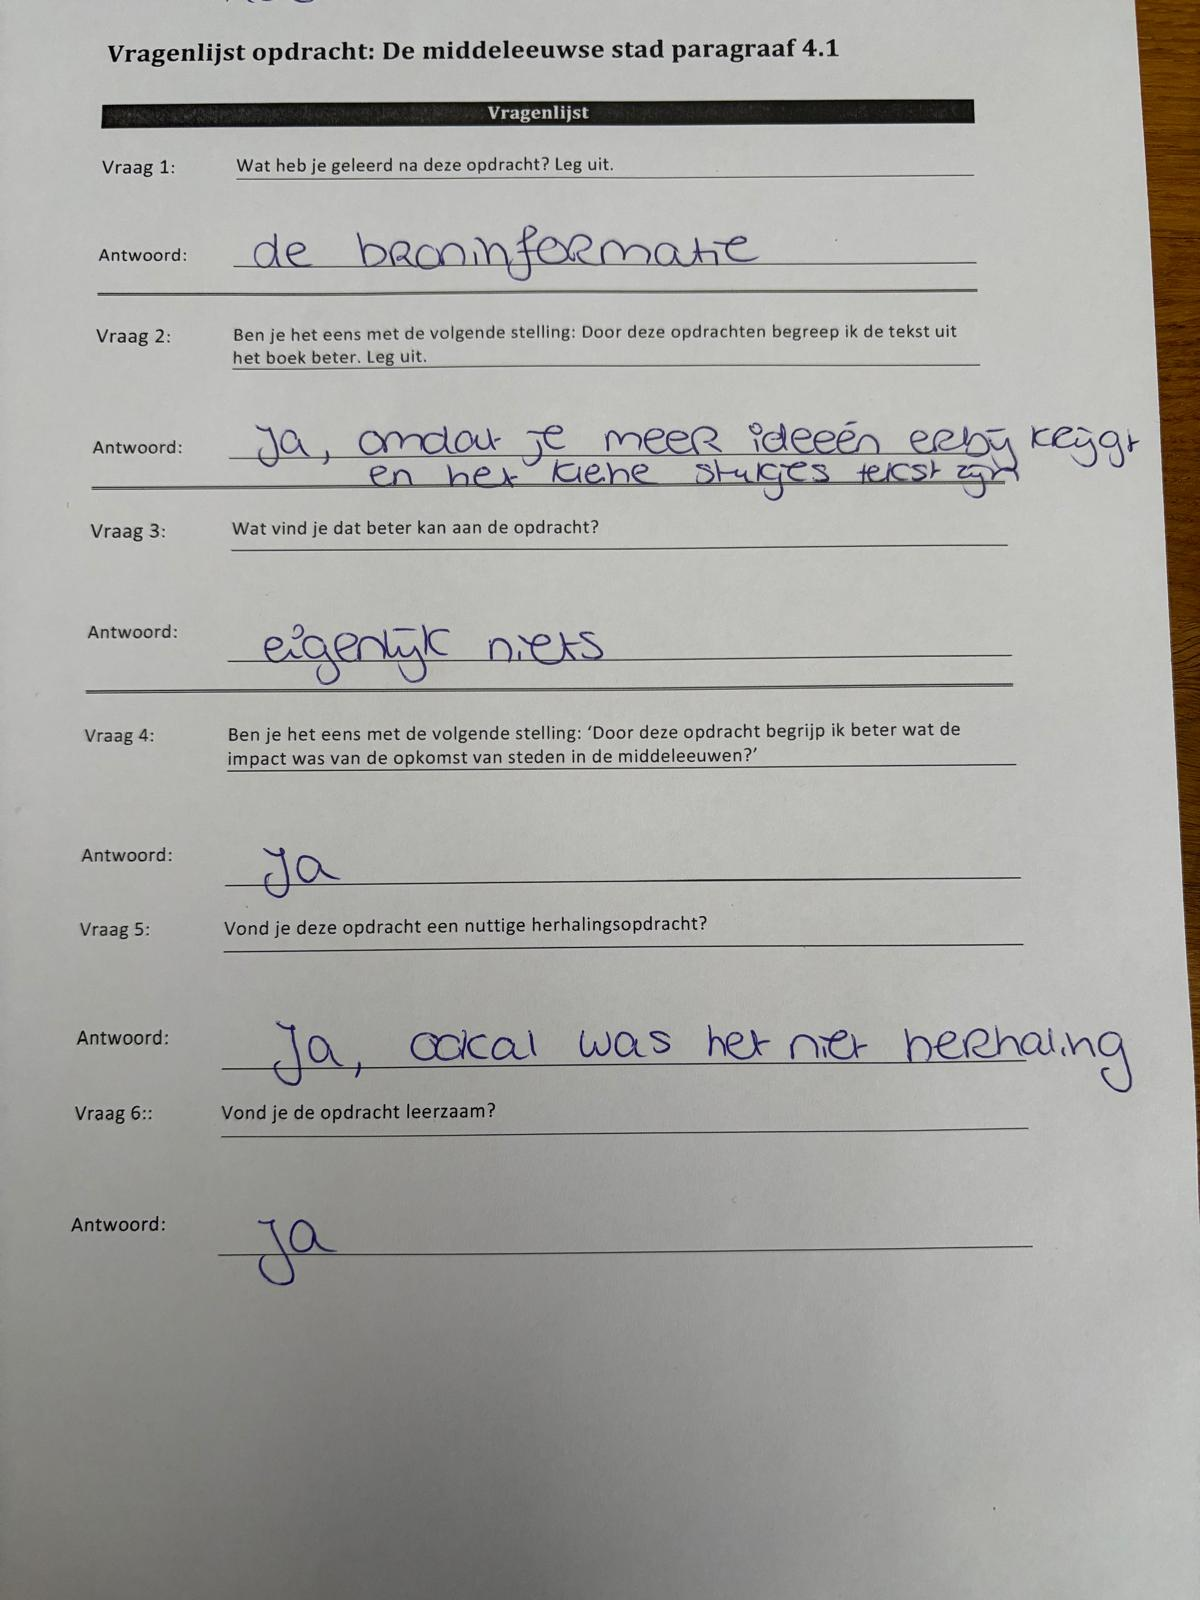 Vragenlijst opdracht: De middeleeuwse stad paragraaf 4.1
Vragenlijst
Vraag 1: Wat heb je geleerd na deze opdracht? Leg uit.
Antwoord: de broninformatie
Vraag 2: Ben je het eens met de volgende stelling: Door deze opdrachten begreep ik de tekst uit
het boek beter. Leg uit.
Antwoord: Ja, omdat je meer ideeén erbij krijgt
en het kleine stukjes tekst zijn
Vraag 3: Wat vind je dat beter kan aan de opdracht?
Antwoord: eigenlijk niets
Vraag 4: Ben je het eens met de volgende stelling: ‘Door deze opdracht begrijp ik beter wat de
impact was van de opkomst van steden in de middeleeuwen?’
Antwoord: Ja
Vraag 5: Vond je deze opdracht een nuttige herhalingsopdracht?
Antwoord: Ja, ookal was het niet herhaling
Vraag 6:: Vond je de opdracht leerzaam?
Antwoord: Ja